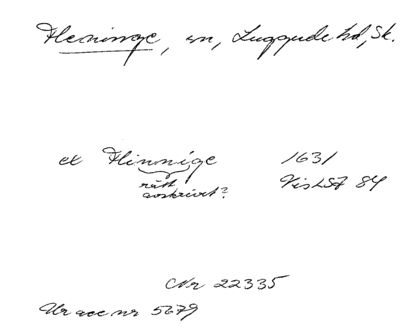 Fleninge, sn, Luggude hd, Sk.
et Flinnige 1631
rätt
avskrivet? VisLSt 84
Nr 22335
Ur acc nr 5679